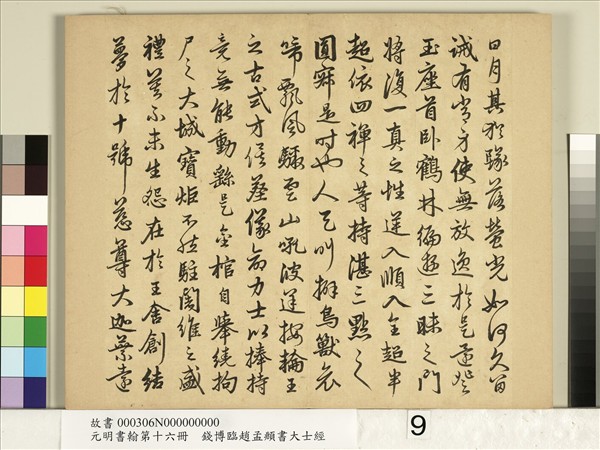 日月其猶墜落螢光如何久留
誡有為方使無放逸於是還登
玉座首臥鶴林徧遊三昧之門
將復一真之性逆入順入全超半
超依四禪之等持湛三點之
圓寂是時也人天叫擗鳥獸哀
啼飄風驟雲山吼波逆按輪王
之古式才俟葬儀命力士以捧持
竟無能動繇是金棺自舉繞拘
尸之大城寶炬不然駐闍維之盛
禮蓋以未生怨在於王舍創結
夢於十號慈尊大迦葉遠
故書 000306N000000000
元明書翰第十六冊 錢博臨趙孟頫書大士經
9